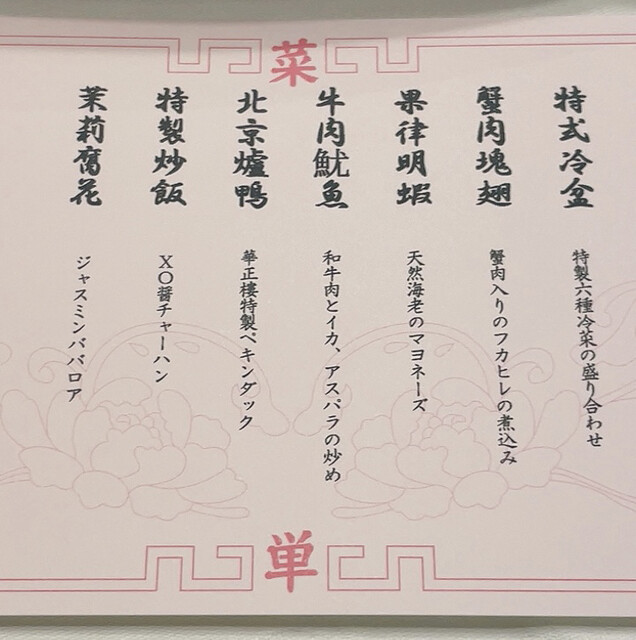 菜
単
特式冷盆
特製六種冷菜の盛り合わせ
蟹肉塊翅
蟹肉入りのフカヒレの煮込み
果律明蝦
天然海老のマヨネーズ
牛肉魷魚
和牛肉とイカ、アスパラの炒め
北京爐鴨
華正樓特製ペキンダック
特製炒飯
XO醤チャーハン
茉莉腐花
ジャスミンババロア